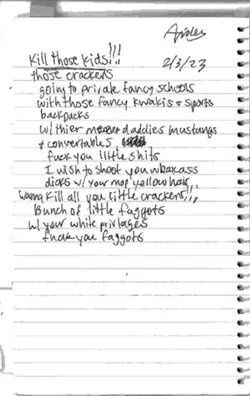 2/3/23
Kill those kids!!!
those crackers
going to private fancy schools
with those fancy khakis & sports
backpacks
w/ thier daddies mustangs
& convertables
fuck you little shits
I wish to shoot you weakass
dicks w/ your mop yellow hair
Wanna kill all you little crackers!!!
Bunch of little faggots
w/ your white privlages
fuck you faggots